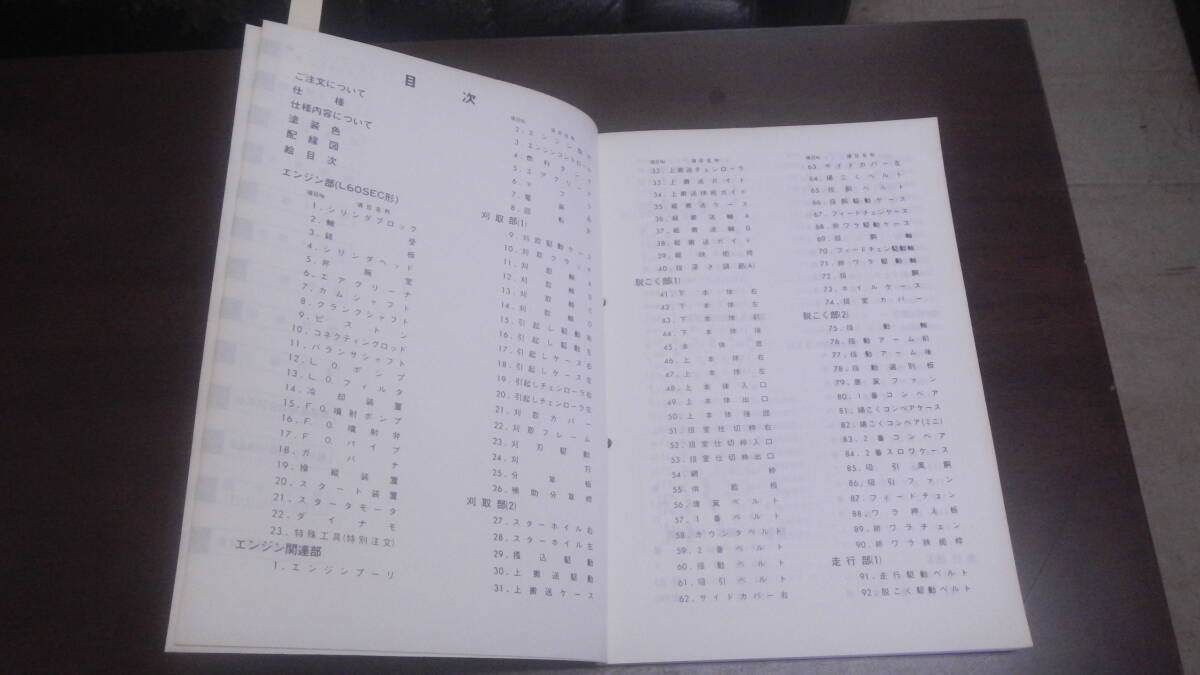 目次
ご注文について
仕様
仕様内容について
塗装色
配線図
絵目次
エンジン部(L60SEC形)
項目№ 項目名称
1.シリンダブロック
2.軸受
3.銘
4.シリンダヘッド
5.弁腕室
6.エアクリーナ
7.カムシャフト
8.クランクシャフト
9.ピストン
10.コネクティングロッド
11.バランサシャフト
12.L.O.ポンプ
13.L.O.フィルタ
14.冷却装置
15.F.O.噴射ポンプ
16.F.O.噴射弁
17.F.O.パイプ
18.ガバナ
19.操縦装置
20.スタート装置
21.スタータモータ
22.ダイナモ
23.特殊工具(特別注文)
エンジン関連部
1.エンジンプーリ
項目№ 項目名称
2.エンジン
3.エンジンコントロール
4.燃料タンク
5.エアクリーナ
6.マフラ
7.電装品
8.回転
刈取部(1)
9.刈取駆動ケース
10.刈取クラッチ
11.刈取軸A
12.刈取軸B
13.刈取軸C
14.刈取軸D
15.引起し駆動右
16.引起し駆動左
17.引起しケース右
18.引起しケース左
19.引起しチェンローラ右
20.引起しチェンローラ左
21.刈取カバー
22.刈取フレーム
23.刈刃駆動
24.刈刃
25.分草板
26.補助分草桿
刈取部(2)
27.スターホイル右
28.スターホイル左
29.掻込駆動
30.上搬送駆動
31.上搬送ケース
項目№ 項目名称
32.上搬送チェンローラ
33.上搬送ガイド
34.上搬送挾扼ガイド
35.縦搬送ケース
36.縦搬送軸A
37.縦搬送軸B
38.縦搬送ガイド
39.縦挾扼桿
40.扱深さ調節(A)
脱こく部(1)
41.下本体右
42.下本体左
43.下本体前
44.下本体後
45.本体底
46.上本体右
47.上本体左
48.上本体入口
49.上本体出口
50.上本体後面
51.扱室仕切枠右
52.扱室仕切枠入口
53.扱室仕切枠出口
54.網枠
55.供給板
56.唐箕ベルト
57.1番ベルト
58.カウンタベルト
59.2番ベルト
60.揺動ベルト
61.吸引ベルト
62.サイドカバー右
項目№ 項目名称
63.サイドカバー左
64.揚こくベルト
65.扱胴ベルト
66.扱胴駆動ケース
67.フィードチェンケース
68.排ワラ駆動ケース
69.扱胴軸
70.フィードチェン駆動軸
71.排ワラ駆動軸
72.扱胴
73.ホイルケース
74.扱室カバー
脱こく部(2)
75.揺動軸
76.揺動アーム前
77.揺動アーム後
78.揺動選別板
79.唐箕ファン
80.1番コンベア
81.揚こくコンベアケース
82.揚こくコンベア(ミニ)
83.2番コンベア
84.2番スロワケース
85.吸引風胴
86.吸引ファン
87.フィードチェン
88.ワラ押え板
89.排ワラチェン
90.排ワラ挾扼桿
走行部(1)
91.走行駆動ベルト
92.脱こく駆動ベルト